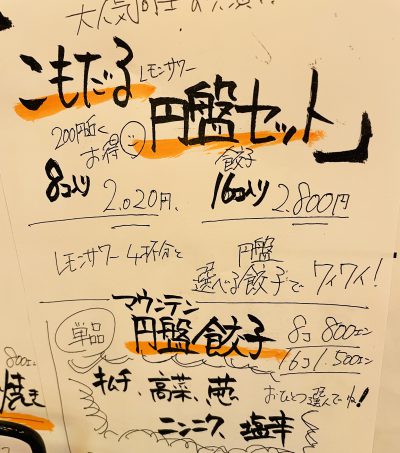 大人気同士の
こもだる レモンサワー
円盤セット」
200円近く
お得
餃子
8コ入り 2,020円、
16コ入り 2,800円
レモンサワー 4杯分と
円盤
選べる餃子でワイワイ!
マウンテン
単品
円盤餃子
8コ 800エン
16コ 1500エン
キムチ、高菜、葱
おひとつ選んでね!
ニンニク、塩辛
800エン
焼き